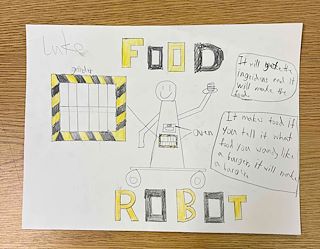 Luke
FOOD
grinder
It will grab the
ingredians and it
will make the
food.
Oven
It makes food if
you tell it what
food you want, like
a burger, it will make
a burger.
ROBOT